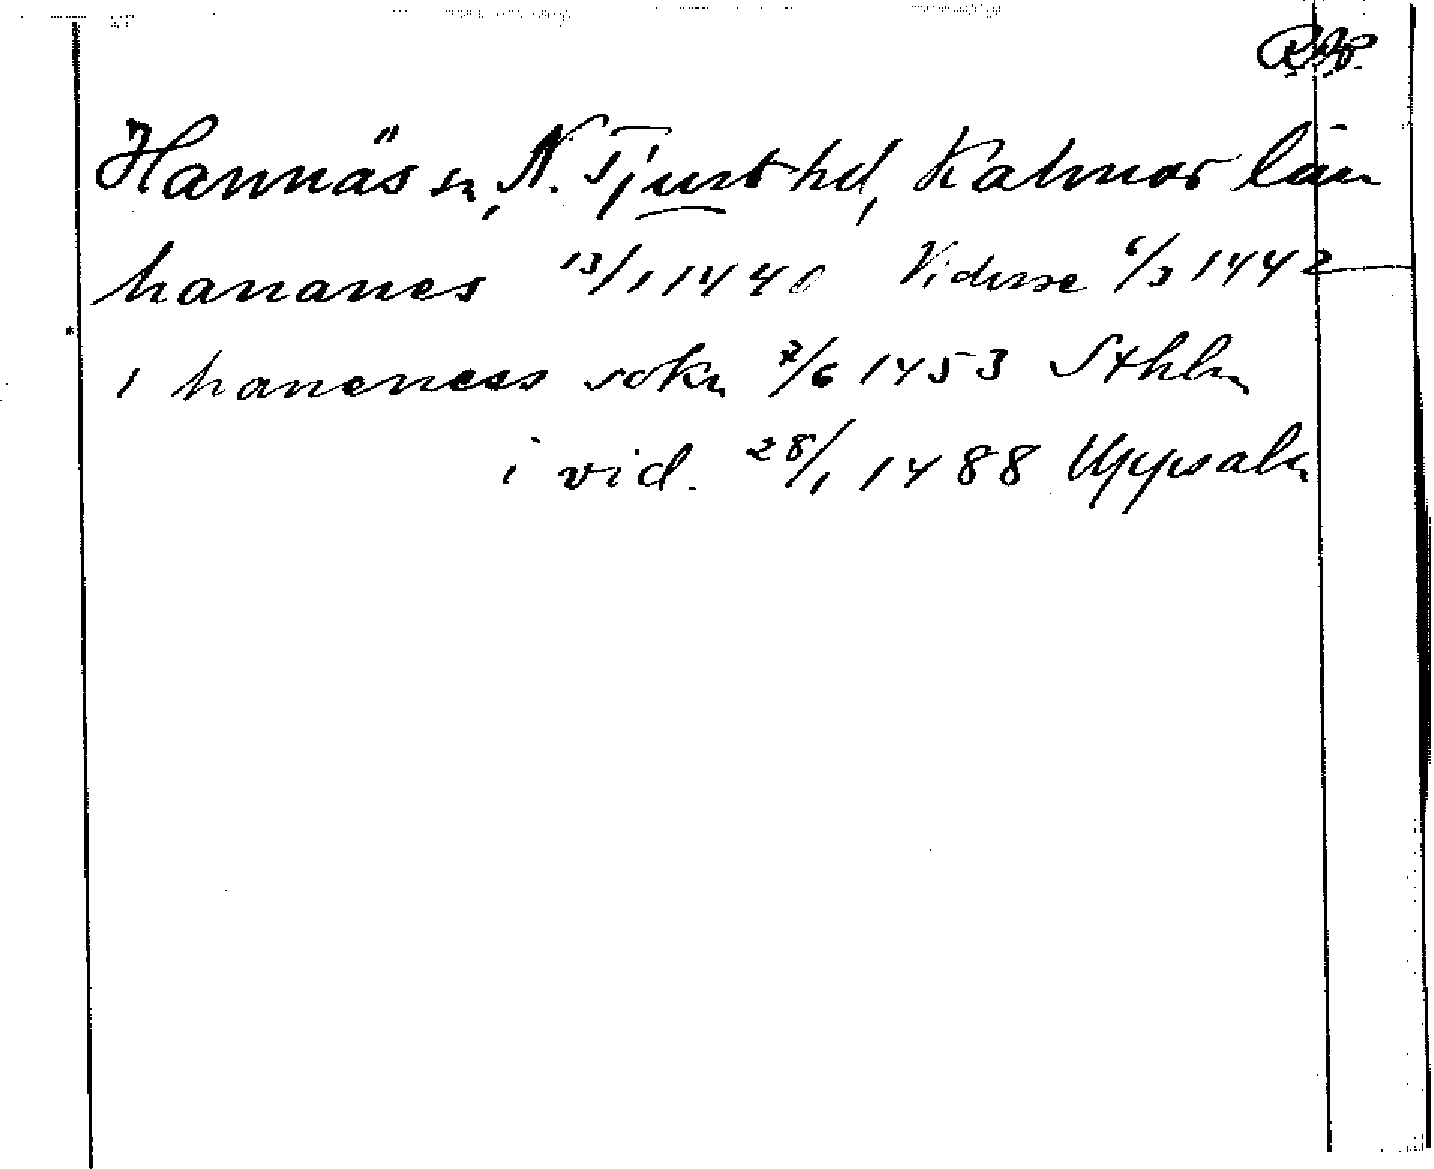 RAp.
Hannäs sn, N. Tjust hd, Kalmar län
hananes 13/1 1440 Vidisse 6/3 1442
i haneness sokn 7/6 1453 Sthlm
i vid. 28/1 1488 Uppsala